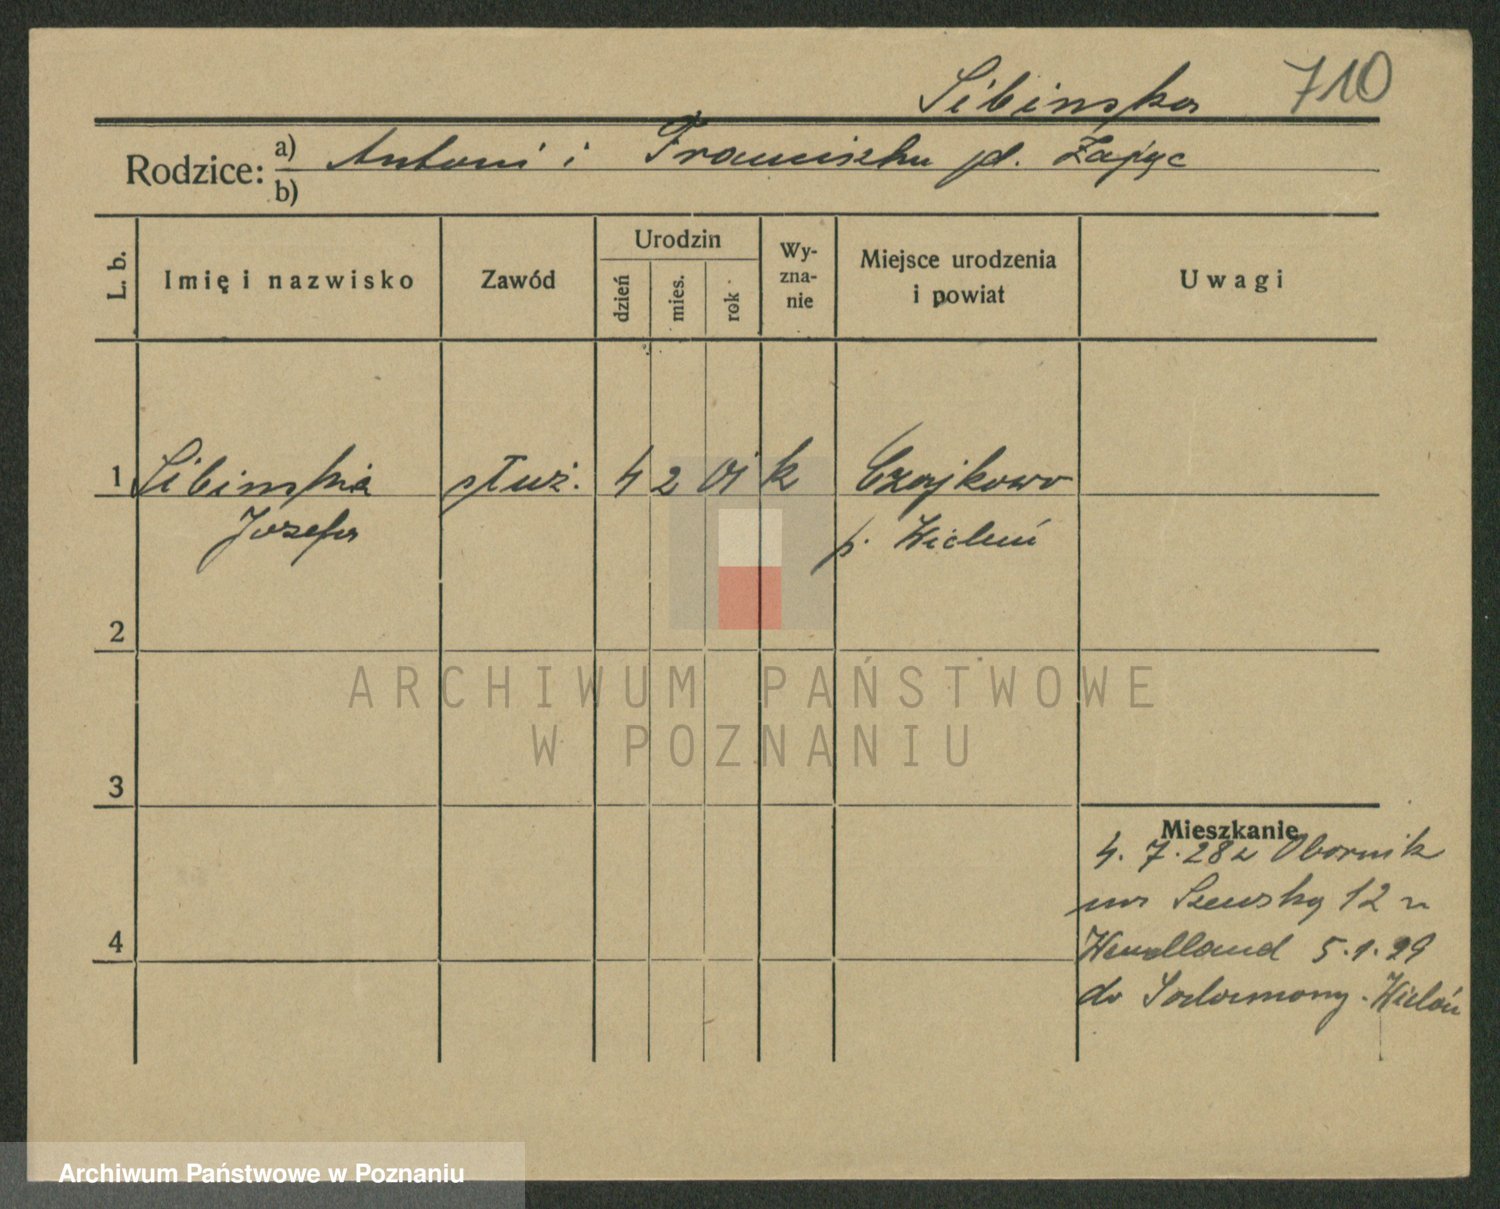 Sibinska 710
Rodzice: a) Antoni i Franciszka d. Zając
b)
L. b. Imię i nazwisko Zawód Urodzin dzień mies. rok Wy-zna-nie Miejsce urodzenia i powiat Uwagi
1 Sibinska służ. 4 2 01 k Czajkowo
Józefa p. Wieluń
2
ARCHIWUM PAŃSTWOWE
W POZNANIU
3
Mieszkanie
4. 7. 28 z Obornik
na Szewską 12 u
4 Wendland 5.1.29
do Wieluń
Archiwum Państwowe w Poznaniu